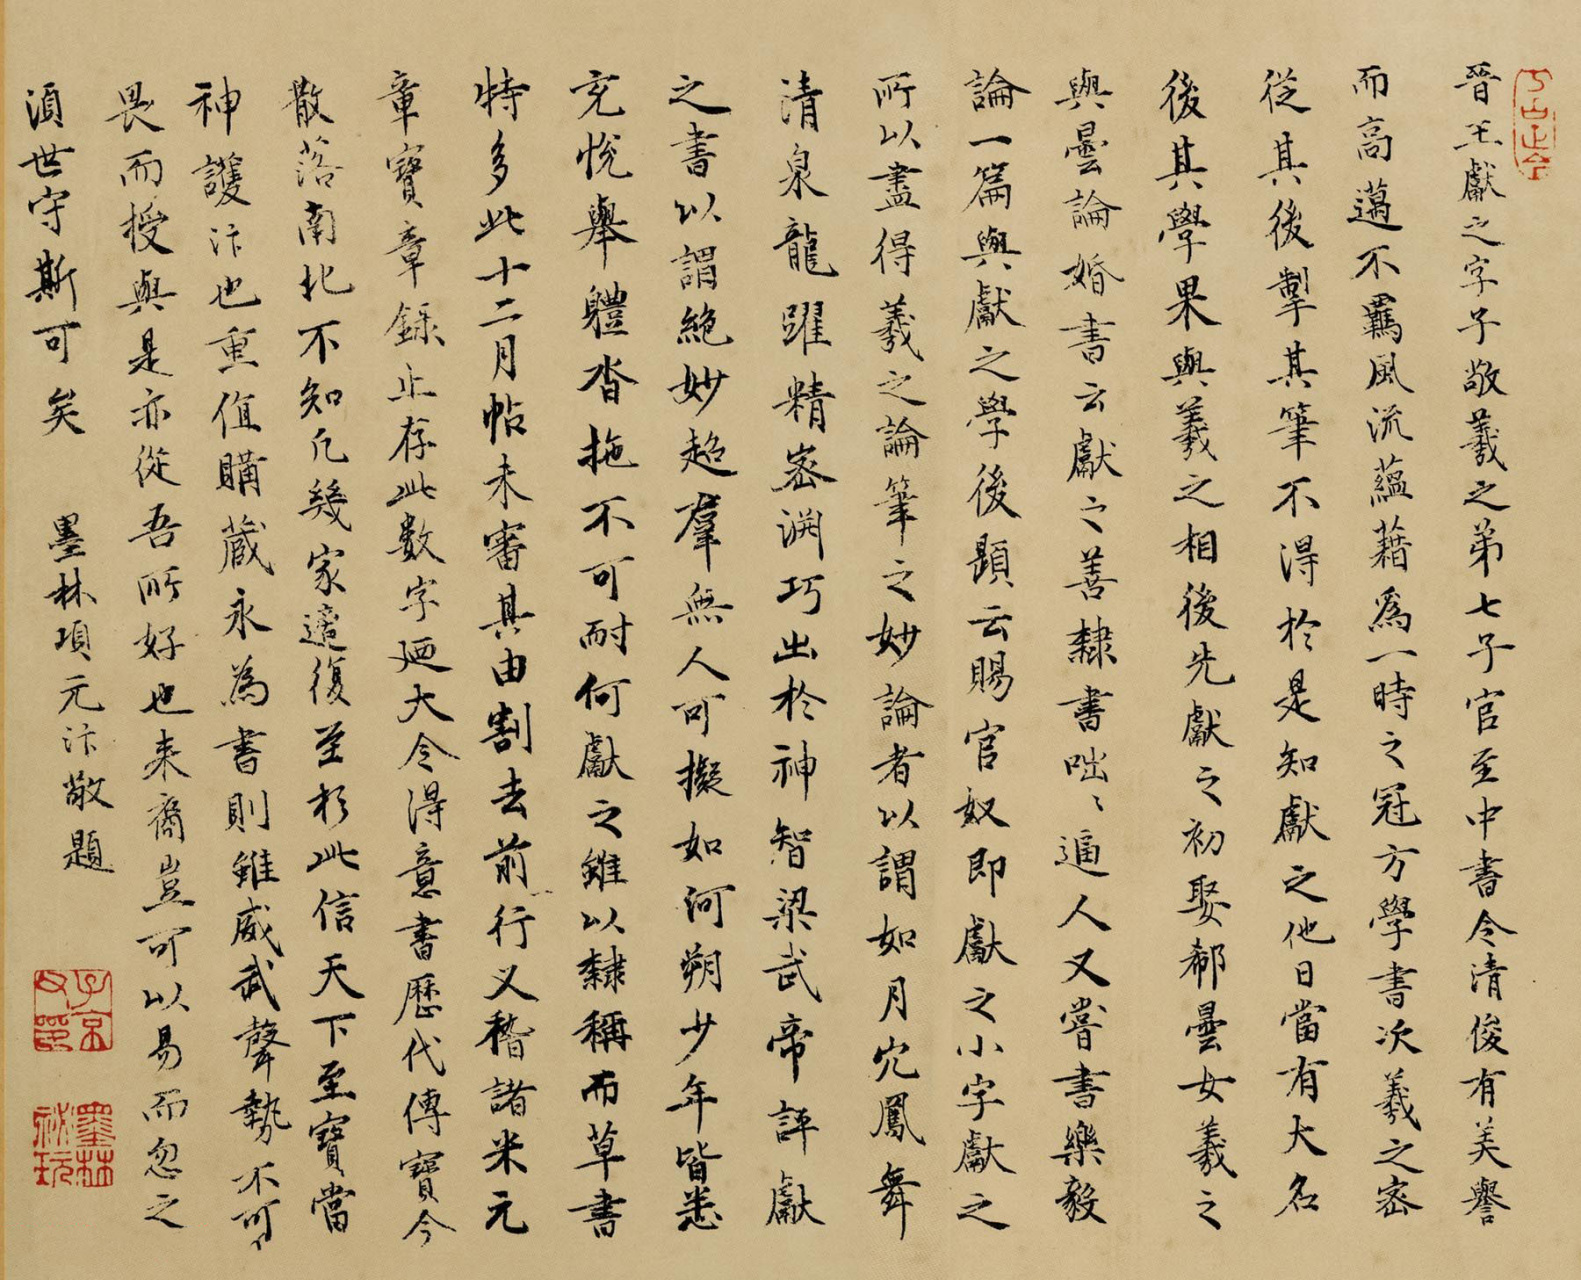 晉王獻之字子敬羲之弟七子官至中書令清俊有美譽
而高邁不羈風流蘊藉為一時之冠方學書次羲之密
從其後掣其筆不得於是知獻之他日當有大名
後其學果與羲之相後先獻之初娶郗曇女羲之
與曇論婚書云獻之善隸書咄咄逼人又嘗書樂毅
論一篇與獻之學後題云賜官奴即獻之小字獻之
所以盡得羲之論筆之妙論者以謂如月穴鳳舞
清泉龍躍精密淵巧出於神智梁武帝評獻
之書以謂絕妙超羣無人可擬如河朔少年皆悉
充悅舉體沓拖不可耐何獻之雖以隸稱而草書
特多此十二月帖未審其由割去前行又稽諸米元
章寶章錄止存此數字廼大令得意書歷代傳寶今
散落南北不知凡幾家適復至於此信天下至寶當
神護汴也重值購藏永為書則雖威武聲勢不可
畏而授與是亦從吾所好也来裔豈可以易而忽之
湏世守斯可矣 墨林項元汴敬題
子京父印
墨林祕玩